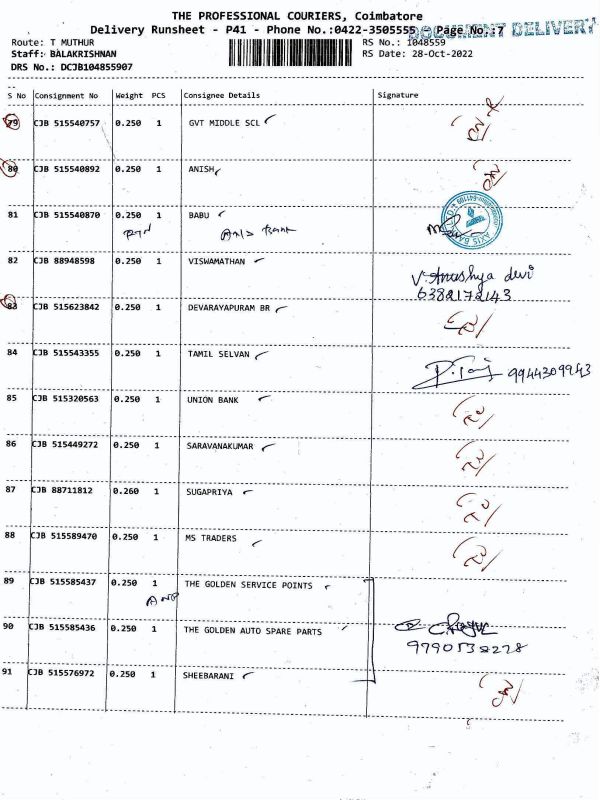 THE PROFESSIONAL COURIERS, Coimbatore
Delivery Runsheet - P41 - Phone No.:0422-3505555 Page No.:7
DOCUMENT DELIVERY
Route: T MUTHUR RS No.: 1048559
Staff: BALAKRISHNAN RS Date: 28-Oct-2022
DRS No.: DCJB104855907
S No Consignment No Weight PCS Consignee Details Signature
79 CJB 515540757 0.250 1 GVT MIDDLE SCL
80 CJB 515540892 0.250 1 ANISH
81 CJB 515540870 0.250 1 BABU
Axis Bank
82 CJB 88948598 0.250 1 VISWAMATHAN
V. Anushya devi
6382172143
83 CJB 515623842 0.250 1 DEVARAYAPURAM BR
84 CJB 515543355 0.250 1 TAMIL SELVAN 9944309943
85 CJB 515320563 0.250 1 UNION BANK
86 CJB 515449272 0.250 1 SARAVANAKUMAR
87 CJB 88711812 0.260 1 SUGAPRIYA
88 CJB 515589470 0.250 1 MS TRADERS
89 CJB 515585437 0.250 1 THE GOLDEN SERVICE POINTS
90 CJB 515585436 0.250 1 THE GOLDEN AUTO SPARE PARTS
9790538228
91 CJB 515576972 0.250 1 SHEEBARANI